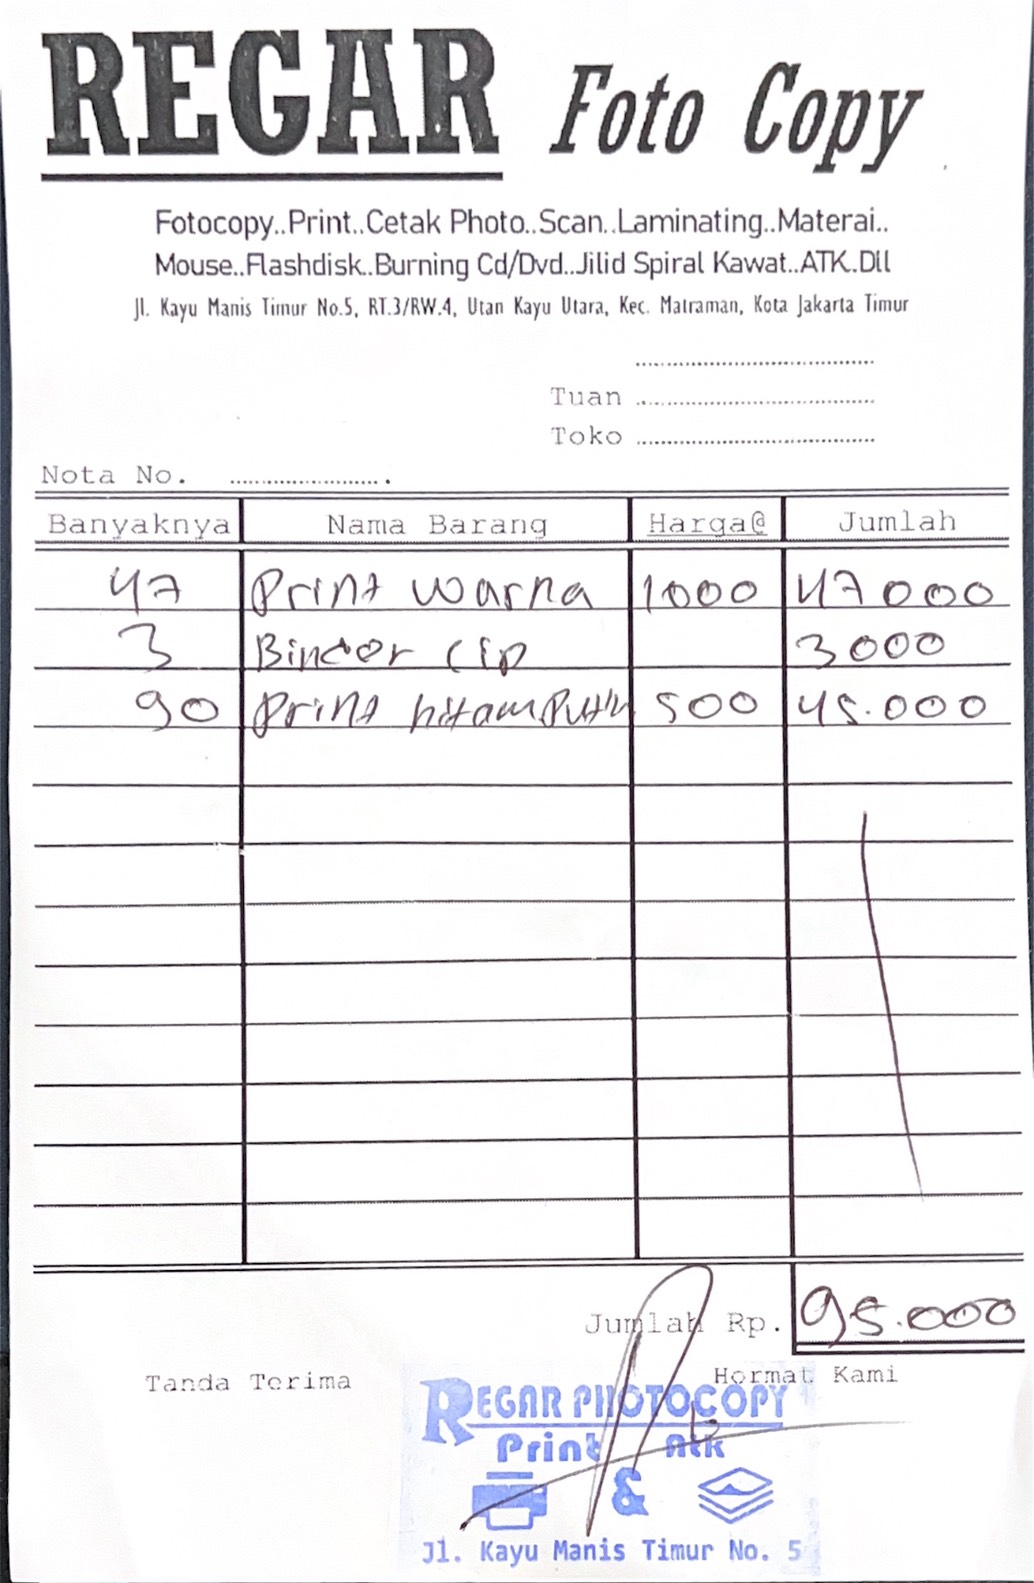 REGAR Foto Copy
Fotocopy..Print..Cetak Photo..Scan..Laminating..Materai..
Mouse..Flashdisk..Burning Cd/Dvd..Jilid Spiral Kawat..ATK.Dll
Jl. Kayu Manis Timur No.5, RT.3/RW.4, Utan Kayu Utara, Kec. Matraman, Kota Jakarta Timur
Tuan
Toko
Nota No.
Banyaknya Nama Barang Harga@ Jumlah
47 Print warna 1000 47000
3 Binder Clip 3000
90 Print hitam Putih 500 45.000
Jumlah Rp. 95.000
Tanda Terima Hormat Kami
REGAR PHOTOCOPY
Print Atk
&
Jl. Kayu Manis Timur No. 5